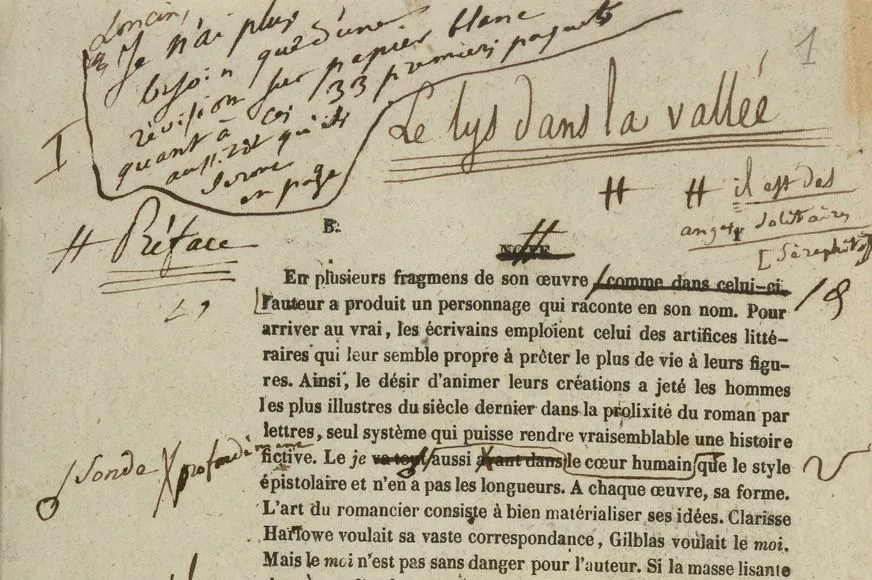 Je n'ai plus
besoin que d'une
révision sur papier blanc
quant à ces 33 premiers paquets
aussitôt qu'ils
seront
en page
1
Le lys dans la vallée
I
# # il est des
anges solitaires
[Séraphita]
# Préface
B.
NOTE
En plusieurs fragmens de son œuvre, comme dans celui-ci,
l'auteur a produit un personnage qui raconte en son nom. Pour
arriver au vrai, les écrivains emploient celui des artifices litté-
raires qui leur semble propre à prêter le plus de vie à leurs figu-
res. Ainsi, le désir d'animer leurs créations a jeté les hommes
les plus illustres du siècle dernier dans la prolixité du roman par
lettres, seul système qui puisse rendre vraisemblable une histoire
fictive. Le je va tout aussi avant dans le cœur humain que le style
sonde profondément
épistolaire et n'en a pas les longueurs. A chaque œuvre, sa forme.
L'art du romancier consiste à bien matérialiser ses idées. Clarisse
Harlowe voulait sa vaste correspondance, Gilblas voulait le moi.
Mais le moi n'est pas sans danger pour l'auteur. Si la masse lisante